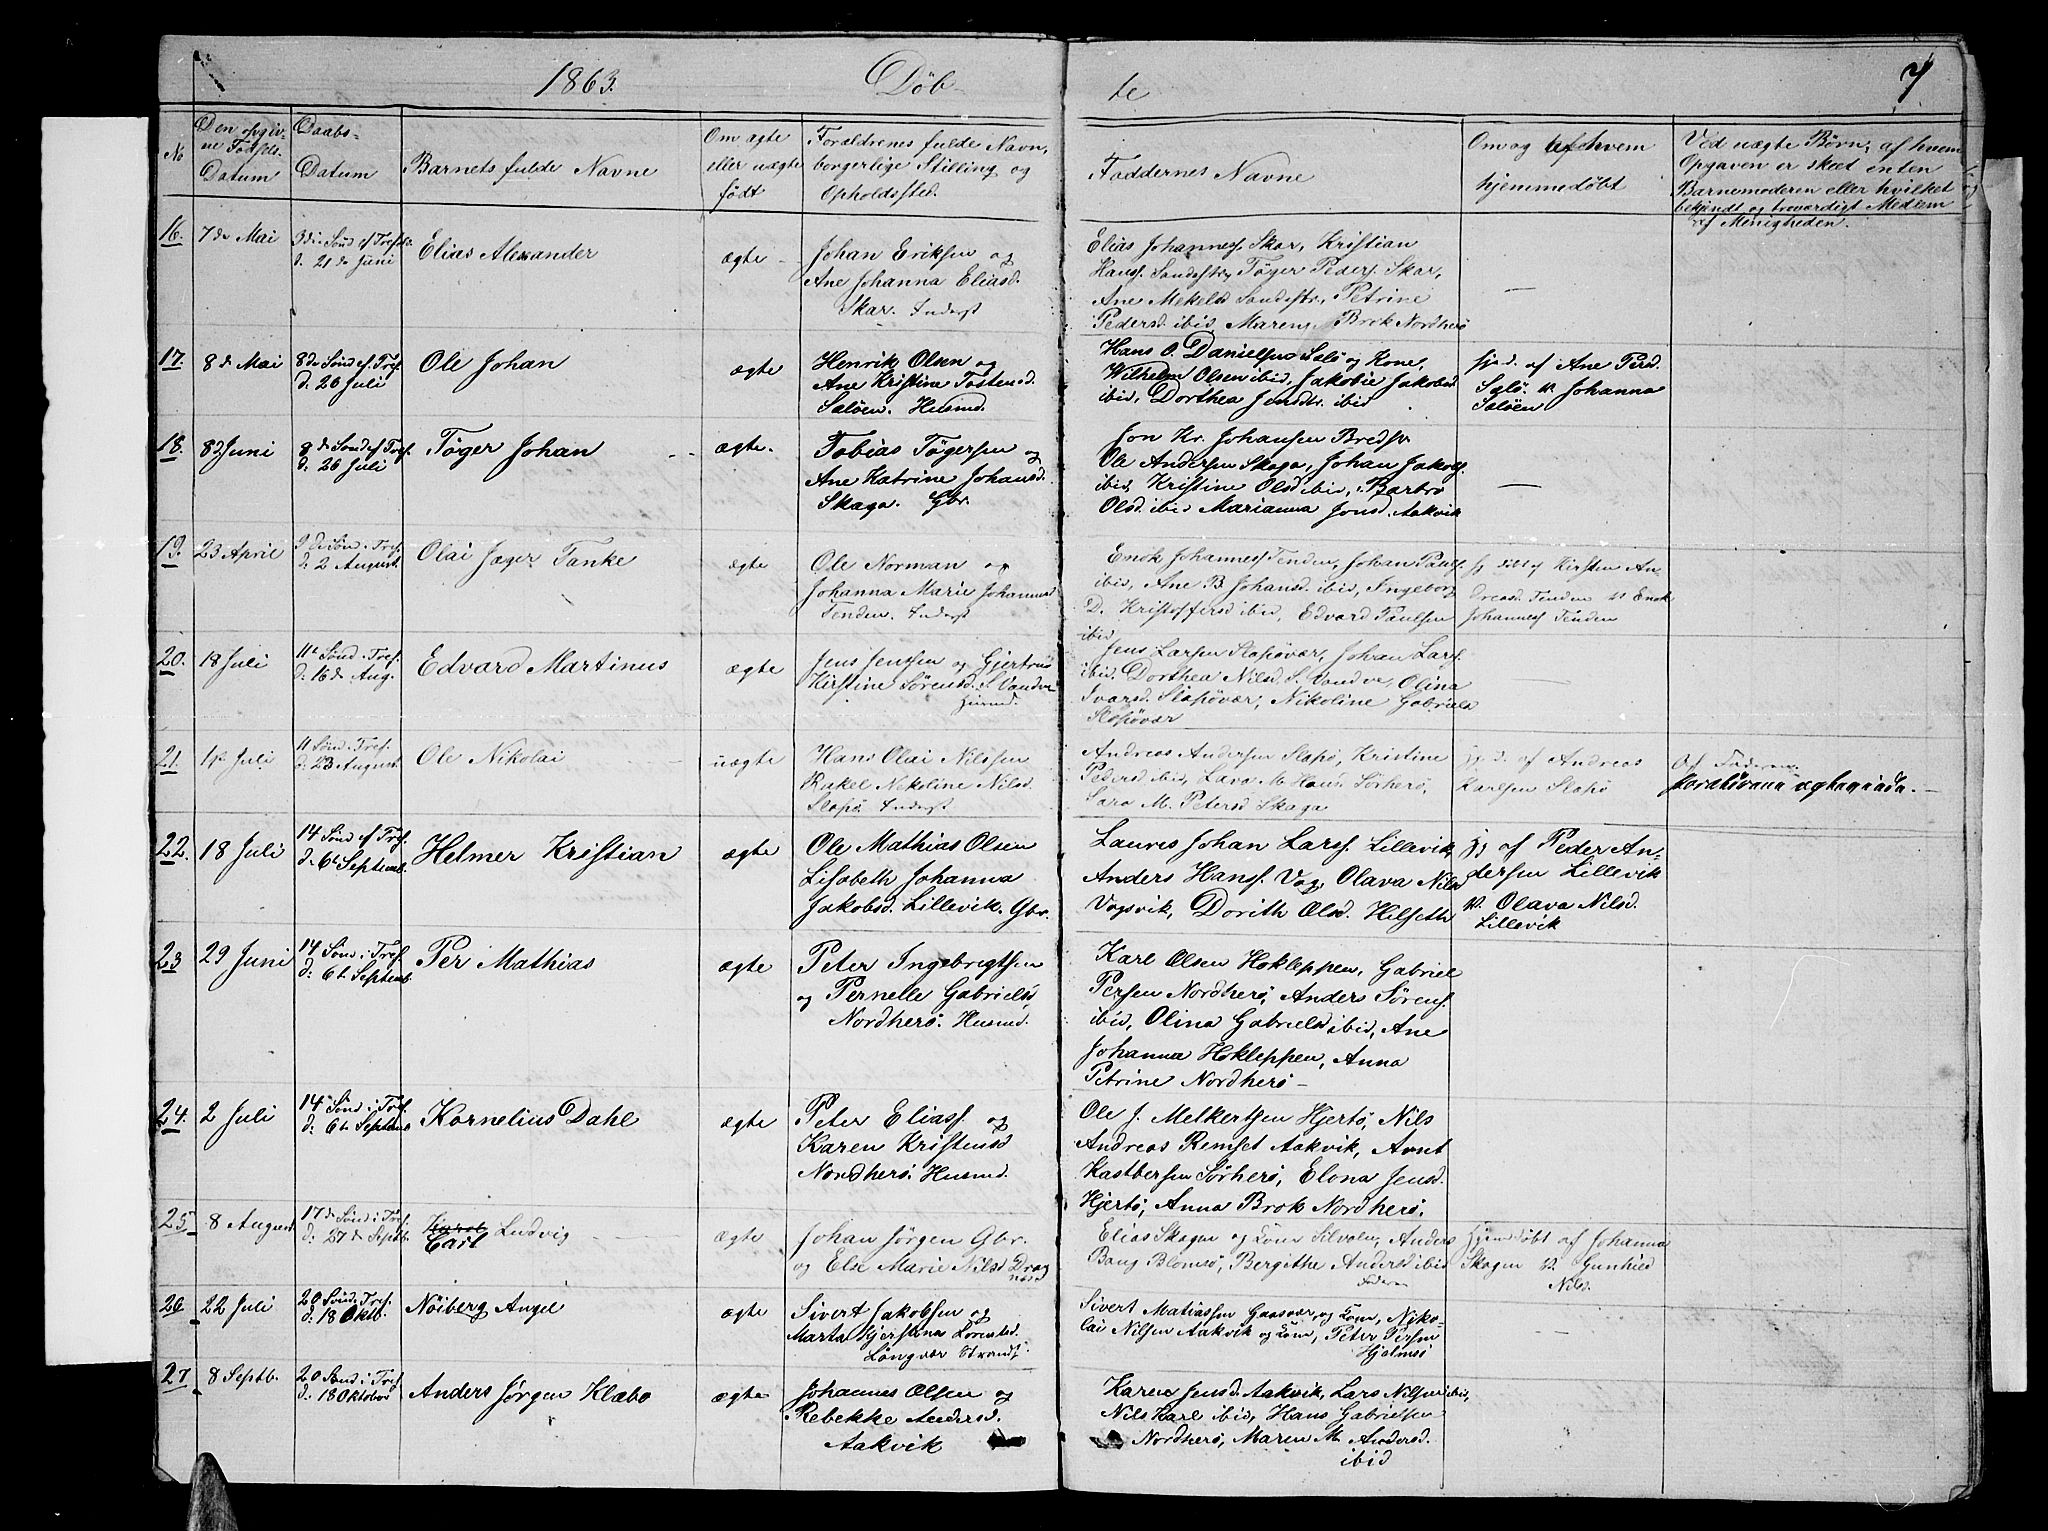 1863. Døb- te 7
No
Den opgiv-
ne Fødsels-
Datum
Daabs-
Datum
Barnets fulde Navne
Om ægte
eller uægte
født
Forældrenes fulde Navn,
borgerlige Stilling og
Opholdssted.
Faddernes Navne
Om og af hvem
hjemmedøbt
Ved uægte Børn, af hvem
Opgaven er skeet enten
Barnemoderen eller hvilket
bekjendt og troværdigt Medlem
af Menigheden.
16. 7de Mai
3die Sønd. ef Tref.
d. 21de Juni
Elias Alexander
ægte
Johan Eriksen og
Ane Johanna Eliasd.
Skar. Inderst
Elias Johannes. Skar, Kristian
Hans. Sandestr, Tøger Peders. Skar,
Ane Mekelsd Sandestr, Petrine
Pedersd. ibid, Maren Brok Nordherø
—
17. 8de Mai
8de Sønd ef. Tref
d. 26 Juli
Ole Johan
ægte
Henrik Olsen og
Ane Kristine Tostensd.
Saløen. Husmd.
Hans O. Danielsen Salø og Kone,
Wilhelm Olsen ibid, Jakobie Jakobsd
ibid, Dorthea Jensdtr. ibid
hjd. af Ane Persd.
Salø. v. Johanna
Saløen
18. 8d Juni
8de Sønd ef Tref.
d. 26 Juli
Tøger Johan
ægte.
Tobias Tøgersen og
Ane Katrine Johansd.
Skaga. Gbr.
Jon Kr. Johansen Bredv.
Ole Andersen Skaga, Johan Jakobs.
ibid, Kristine Olsd ibid, Barbro
Olsd. ibid Marianna Jonsd. Aakvik
—
19. 23 April
9de Sønd i Tref.
d. 2 August
Olai Jæger Tanke
ægte
Ole Norman og
Johanna Marie Johannsd
Tenden. Inderst
Enok Johannes. Tenden, Johan Pauls.
ibid, Ane B. Johansd. ibid, Ingeborg
D. Kristoffersd ibid, Edvard Paulsen
ibid
hj. døbt af Kirsten An-
dreasd. Tenden v. Enok
Johannes. Tenden
20. 18 Juli
11te Sønd i Tref.
d. 16de Aug.
Edvard Martinus
ægte
Jens Jenssen og Gjertrud
Kirstine Sørensd. S. Vandve
Husmd.
Jens Larsen Slapøvær, Johan Lars.
ibid. Dorthea Nilsd. S. Vandve, Olina
Ivarsd. Slapøvær, Nikoline Gabrielsd
Slapøvær
—
21. 14 Juli
11 Sønd i Tref.
d. 23 August
Ole Nikolai
uægte
Hans Olai Nilssen
Rakel Nekoline Nilsd.
Slapø Inderst
Andreas Andersen Slapø, Kristine
Pedersd ibid, Lava M. Hans. Sørherø,
Sara M. Petersd Skaga
hj. d. af Andreas
Karlsen Slapø
Af Faderen
22. 18 Juli
14 Sønd ef Tref.
d. 6te Septemb.
Helmer Kristian
ægte
Ole Mathias Olsen
Lisabeth Johanna
Jakobsd. Lillevik. Gbr.
Laures Johan Lars. Lillevik,
Anders Hans. Vag, Olava Nilsd
Vagsvik, Dorith Olsd. Hilseth
hj af Peder An-
dersen Lillevik
v. Olava Nilsd.
Lillevik
23 29 Juni
14 Sønd i Tref.
d: 6te Septemb
Per Mathias
ægte
Peter Ingebrigtsen
og Pernelle Gabrielsd,
Nordherø. Husmd.
Karl Olsen Hokleppen, Gabriel
Persen Nordherø, Anders Sørens.
ibid, Olina Gabrielsd ibid, Ane
Johanna Hokleppen, Anna
Petrine Nordherø —
24. 2 Juli
14 Sønd i Tref.
d: 6te Septemb
Kornelius Dahl
ægte
Peter Elias. og
Karen Kristensd
Nordherø. Husmd.
Ole J. Melkertsen Hjertø, Nils
Andreas Remset Aakvik, Arnt
Kastbersen Sørherø, Elena Jensd.
Hjertø, Anna Brok Nordherø.
25 8 August
17de Sønd i Tref.
d: 27de Septb.
Carl Ludvig
ægte
Johan Jørgen Gbr.
og Else Marie Nilsd Drag
næsd
Elias Skagen og Kone Silvola, Anders
Bang Blomsø, Bergithe Andersd ibid
Faderen
Hjemdøbt af Johanna
Skagen v. Gunhild
Nilsd.
26 22 Juli
20 Sønd i Tref.
d: 18 Oktb.
Nøiberg Angel
ægte
Sivert Jakobsen og
Marta Kjerstina Lorentsd.
Løngvær Strands.
Sivert Matiassen Gaasvær og Kone, Niko-
lai Nilsen Aakvik og Kone, Peter Persen
Hjelmsø
—
27 8 Septb.
20 Sønd i Tref
d. 18 Oktober
Anders Jørgen Klæbo
ægte
Johannes Olsen og
Rebekke Andersd.
Aakvik
Karen Jensd. Aakvik, Lars Nilsen ibid,
Nils Karl ibid, Hans Gabrielsen
Nordherø, Maren M. Andersd.
ibid